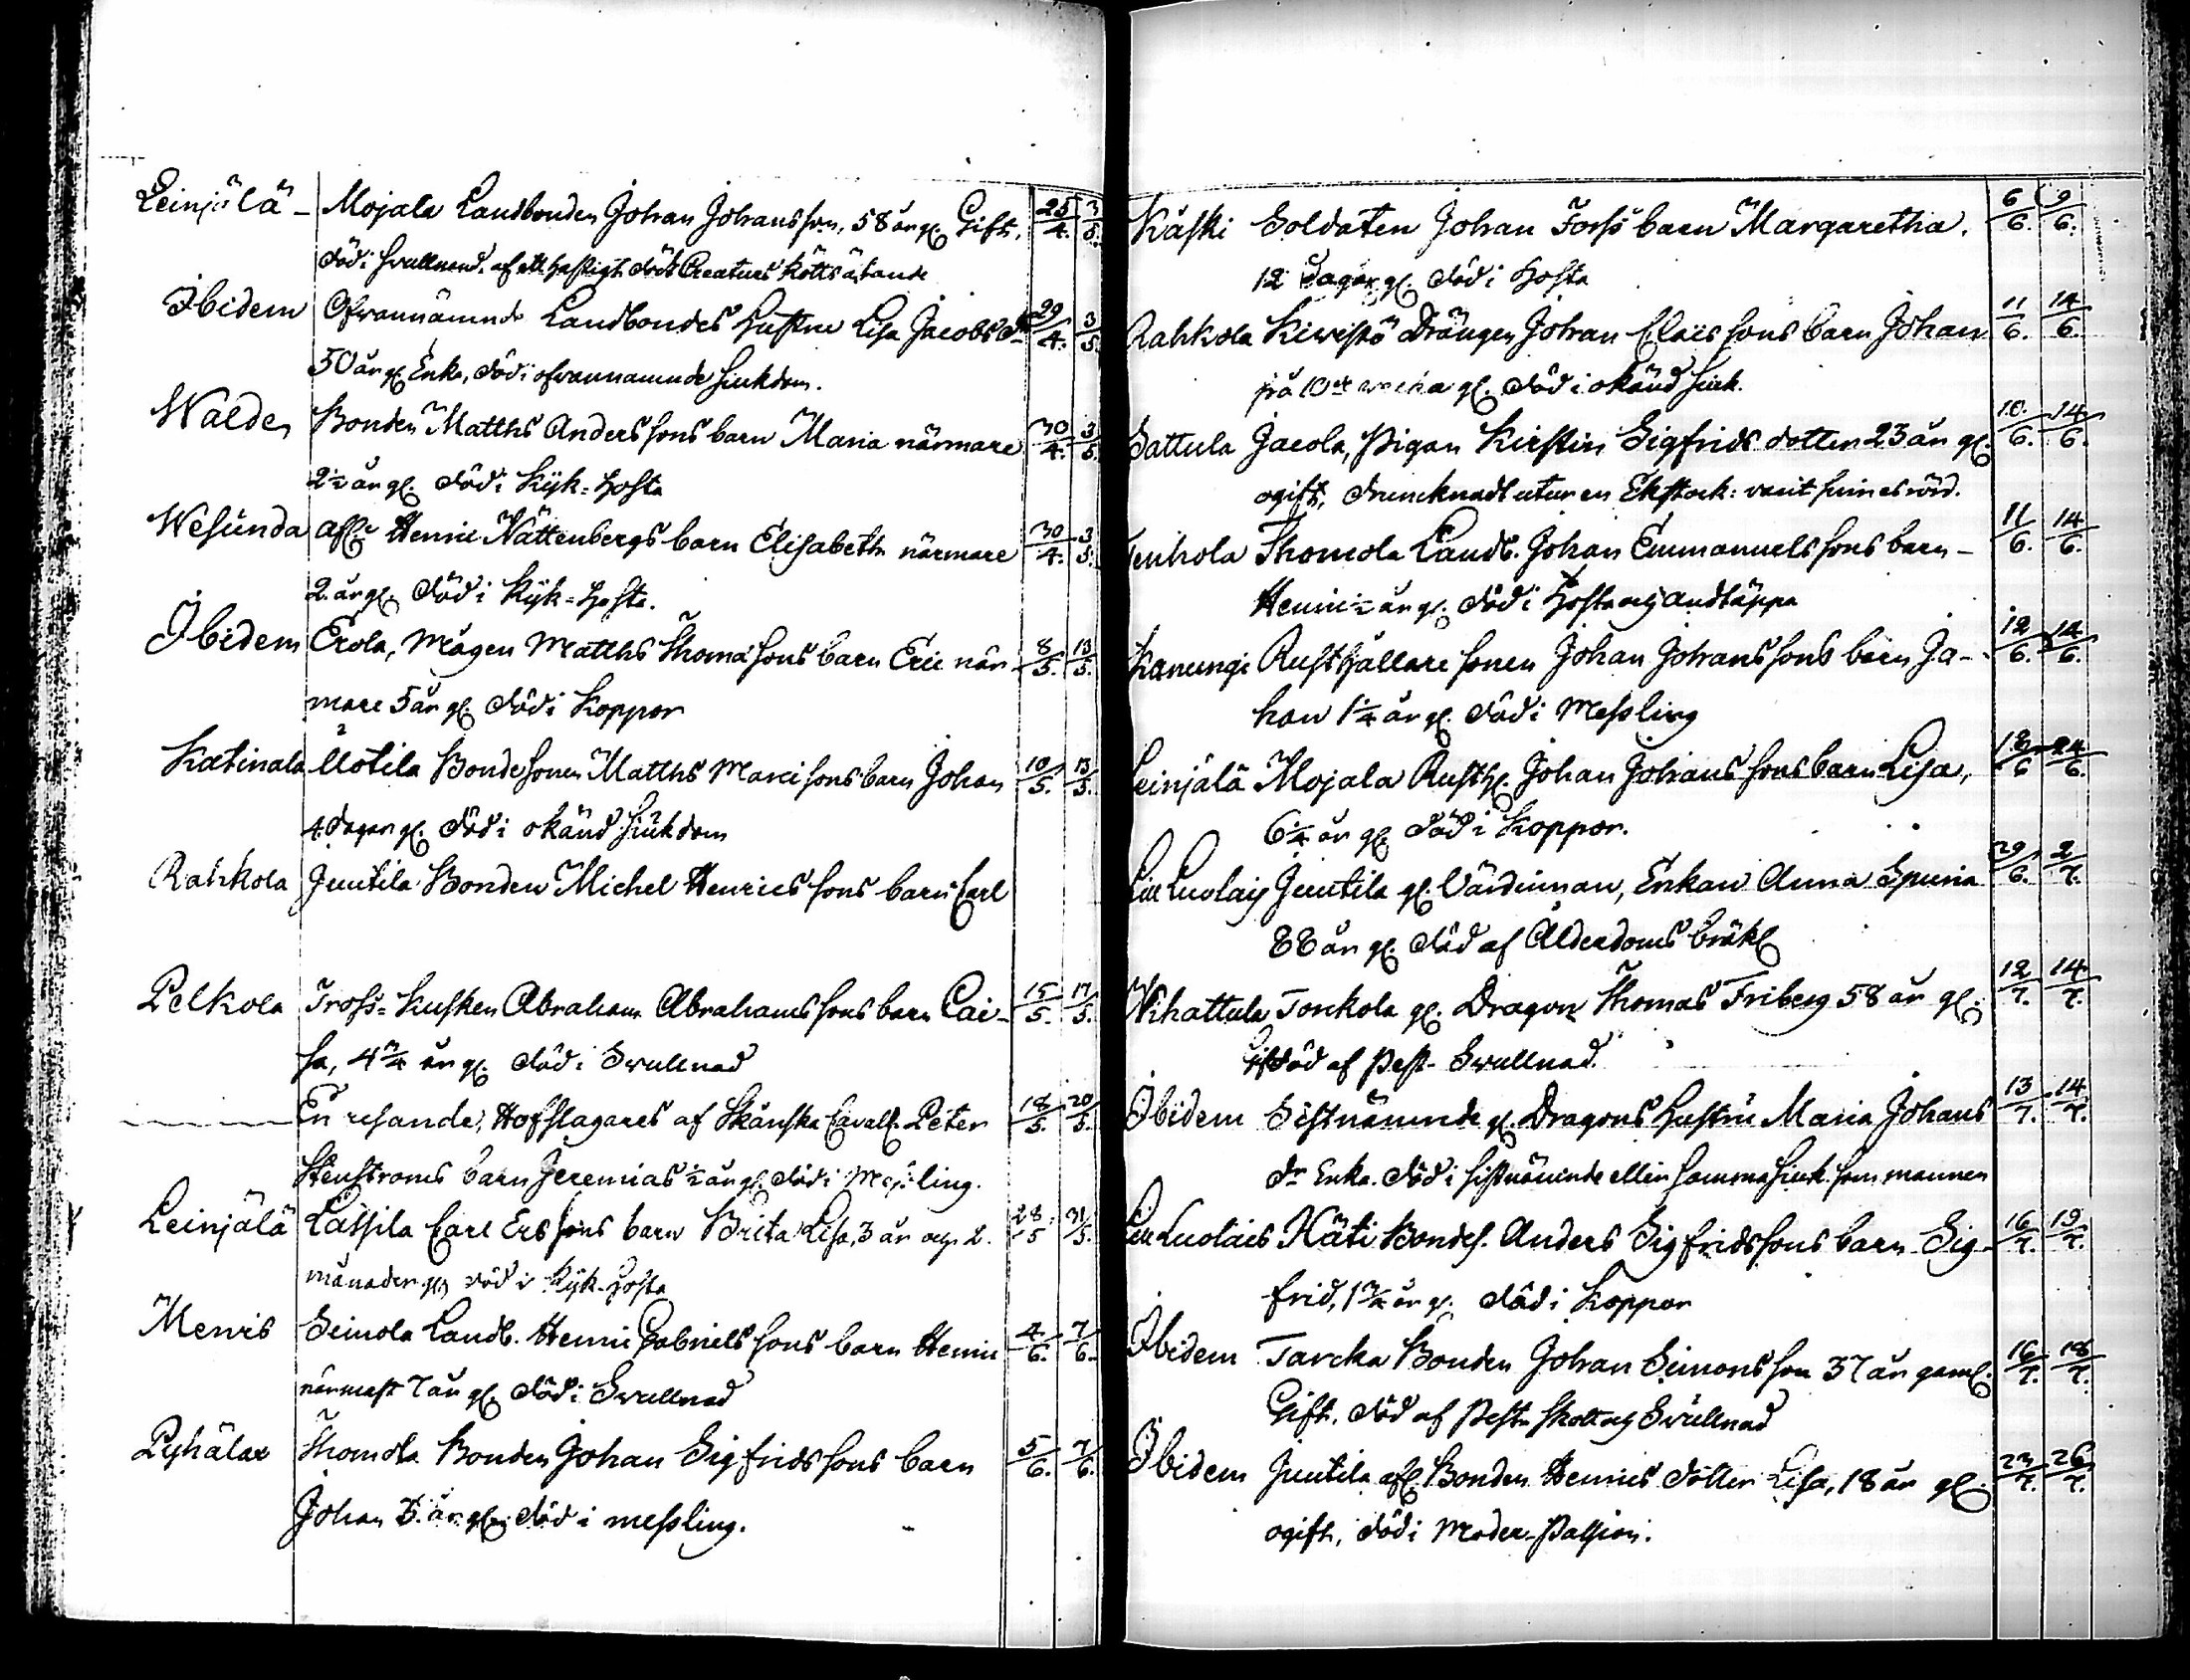 Leinjälä – Mojala Landbonden Johan Johansson, 58 år gl. Gift, 25/4. 3/5.
död i svullnad. af ett hastigt dödt Creaturs kötts ätande
Ibidem Ofvannämnde Landbondes Hustru Lisa Jacobs dr 29/4. 3/5.
50 år gl. Enka, död i ofvannämnde siukdom.
Walde Bonden Matths Anderssons barn Maria närmare 30/4. 3/5.
2½ år gl. död i Kijk-Hosta
Wesunda Henric Nättenbergs barn Elisabeth närmare 30/4. 3/5.
2. år gl. död i Kijk-Hosta.
Ibidem Erola, Mågen Matths Thomæsons barn Eric när- 8/5. 13/5.
mare 5 år gl. död i Koppor
Katinala Uotila Bondesonen Matths Marcisons barn Johan 10/5. 13/5.
4 dagar gl. död i okänd siukdom
Rahkola Juutila Bonden Michel Henricssons barn Carl
Pelkola Tross-Kusken Abraham Abrahamssons barn Cai- 15/5. 17/5.
sa, 4¾ år gl. död i Svullnad
En resande, Hofslagares af Skånska Cavall. Peter 18/5. 20/5.
Stenstroms barn Jeremias ½ år gl. död i Messling.
Leinjälä Lassila Carl Erssons barn Brita Lisa, 3 år och 2. 28/5 31/5.
månader gl. död i Kijk-Hosta
Mervis Seimola Landb. Henric Gabrielssons barn Henric 4/6. 7/6.
närmast 7 år gl. död i Svullnad
Pyhälax Thomola Bonden Johan Sigfridssons barn 5/6. 7/6.
Johan 3. år gl. död i messling.
Käski Soldaten Johan Forss barn Margaretha. 6/6. 9/6.
12 dagar gl. död i Hosta
Rahkola Kivistö Drängen Johan Claëssons barn Johan 11/6. 14/6.
på 10de wecka gl. död i okänd siuk.
Sattula Jacola, Pigan Kirstin Sigfrids dotter 23 år gl. 10/6. 14/6.
ogift, druncknadt utur en Ekstock:
Tenhola Thomola Landb. Johan Emmanuelssons barn – 11/6. 14/6.
Henric ½ år gl. död i Hosta och andtäppa
Kanungi Rusthållare sonen Johan Johanssons barn Jo- 12/6. 14/6.
han 1¼ år gl. död i Messling
Leinjälä Mojala Rusth. Johan Johanssons barn Lisa, 18/6 24/6.
6¼ år gl. död i Koppor.
Luolais Juutila gl. Värdinnan, Enkan Anna 29/6. 2/7.
88 år gl. död af Ålderdoms bräkl
Wihattula Tonkola gl. Dragon Thomas Friberg 58 år gl. 12/7. 14/7.
Gift död af Pest-Svullnad.
Ibidem Sistnämnde gl. Dragons Hustru Maria Johans 13/7. 14/7.
dr Enka. död i sistnämnde eller samma siuk. som mannen
Luolais Käti Bondes. Anders Sigfridssons barn Sig- 16/7. 19/7.
frid, 1¾ år gl. död i Koppor
Ibidem Tarcka Bonden Johan Simonsson 37 år gaml. 16/7. 18/7.
Gift, död af Pest skott och Svullnad
Ibidem Juutila afl. Bonden Henrics dotter Lisa, 18 år gl. 23/7. 26/7.
ogift, död i Moder-Passion.